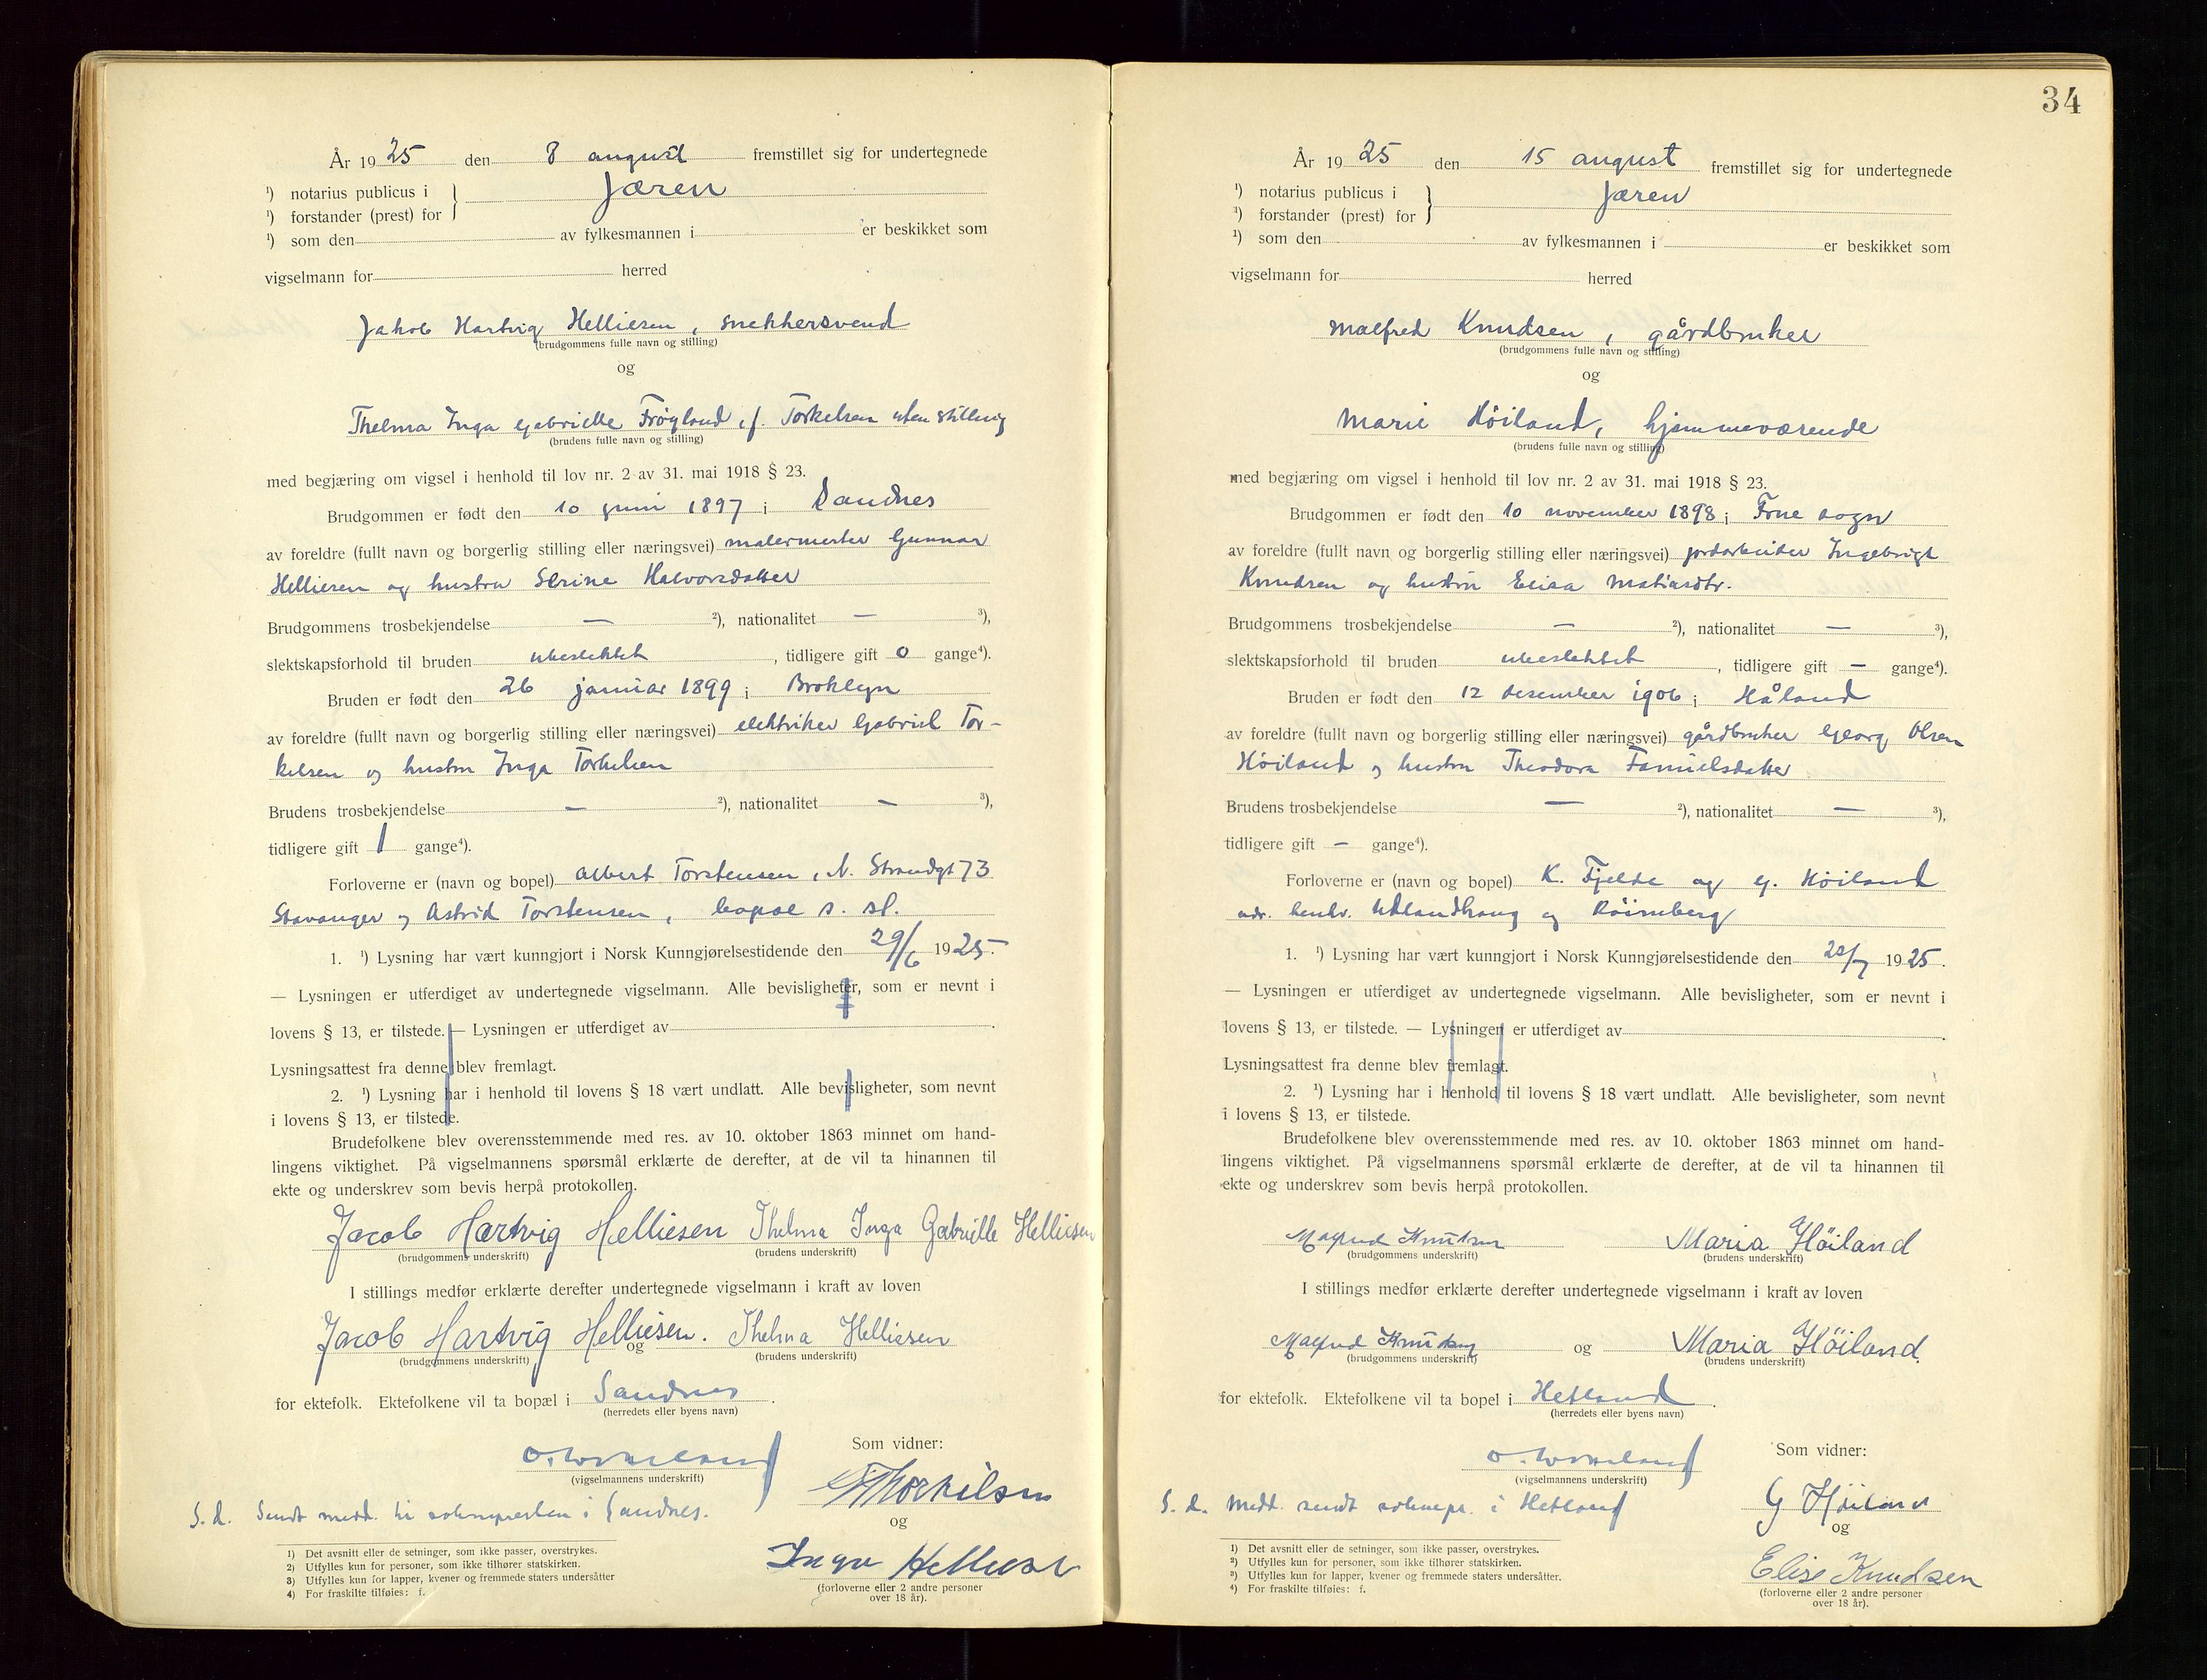 År 1925 den 8 august fremstillet sig for undertegnede
¹) notarius publicus i } Jæren
¹) forstander (prest) for
¹) som den av fylkesmannen i er beskikket som
vigselmann for herred
Jakob Hartvig Helliesen, snekkersvend
(brudgommens fulle navn og stilling)
og
Thelma Inga Gabrielle Frøyland, f. Torkelsen uten stilling
(brudens fulle navn og stilling)
med begjæring om vigsel i henhold til lov nr. 2 av 31. mai 1918 § 23.
Brudgommen er født den 10 juni 1897 i Sandnes
av foreldre (fullt navn og borgerlig stilling eller næringsvei) malermester Gunnar
Helliesen og hustru Serine Halvorsdatter
Brudgommens trosbekjendelse — ²), nationalitet — ³),
slektskapsforhold til bruden ubeslektet, tidligere gift 0 gange⁴).
Bruden er født den 26 januar 1899 i Broklyn
av foreldre (fullt navn og borgerlig stilling eller næringsvei) elektriker Gabriel Tor-
kelsen og hustru Inga Torkelsen
Brudens trosbekjendelse — ²), nationalitet — ³),
tidligere gift 1 gange⁴).
Forloverne er (navn og bopel) Albert Torstensen, N. Strandgt 73
Stavanger og Astrid Torstensen, bopæl s. st.
1. ¹) Lysning har vært kunngjort i Norsk Kunngjørelsestidende den 29/6 1925.
— Lysningen er utferdiget av undertegnede vigselmann. Alle bevisligheter, som er nevnt i
lovens § 13, er tilstede. — Lysningen er utferdiget av .
Lysningsattest fra denne blev fremlagt.
2. ¹) Lysning har i henhold til lovens § 18 vært undlatt. Alle bevisligheter, som nevnt
i lovens § 13, er tilstede.
Brudefolkene blev overensstemmende med res. av 10. oktober 1863 minnet om hand-
lingens viktighet. På vigselmannens spørsmål erklærte de derefter, at de vil ta hinannen til
ekte og underskrev som bevis herpå protokollen.
Jacob Hartvig Helliesen Thelma Inga Gabrielle Helliesen
(brudgommens underskrift) (brudens underskrift)
I stillings medfør erklærte derefter undertegnede vigselmann i kraft av loven
Jacob Hartvig Helliesen. og Thelma Helliesen
(brudgommens underskrift) (brudens underskrift)
for ektefolk. Ektefolkene vil ta bopæl i Sandnes.
(herredets eller byens navn)
Som vidner:
(vigselmannens underskrift)
G Thorkilsen
S. d. Sendt medd. til soknepresten i Sandnes.
og
Inga Helliesen
(forloverne eller 2 andre personer
over 18 år).
1) Det avsnitt eller de setninger, som ikke passer, overstrykes.
2) Utfylles kun for personer, som ikke tilhører statskirken.
3) Utfylles kun for lapper, kvener og fremmede staters undersåtter
4) For fraskilte tilføies: f.
34
År 1925 den 15 august fremstillet sig for undertegnede
¹) notarius publicus i } Jæren
¹) forstander (prest) for
¹) som den av fylkesmannen i er beskikket som
vigselmann for herred
Malfred Knudsen, gårdbruker
(brudgommens fulle navn og stilling)
og
Marie Höiland, hjemmeværende
(brudens fulle navn og stilling)
med begjæring om vigsel i henhold til lov nr. 2 av 31. mai 1918 § 23.
Brudgommen er født den 10 november 1898 i Frue sogn
av foreldre (fullt navn og borgerlig stilling eller næringsvei) jordarbeider Ingebrigt
Knudsen og hustru Elisa Matiasdtr.
Brudgommens trosbekjendelse — ²), nationalitet — ³),
slektskapsforhold til bruden ubeslektet, tidligere gift — gange⁴).
Bruden er født den 12 desember 1906 i Håland
av foreldre (fullt navn og borgerlig stilling eller næringsvei) gårdbruker Georg Olsen
Höiland og hustru Theodora Famuelsdatter
Brudens trosbekjendelse — ²), nationalitet — ³),
tidligere gift — gange⁴).
Forloverne er (navn og bopel) K. Fjelde og G. Höiland
adr. henhv. Udlandhaug og Röineberg
1. ¹) Lysning har vært kunngjort i Norsk Kunngjørelsestidende den 22/7 1925.
— Lysningen er utferdiget av undertegnede vigselmann. Alle bevisligheter, som er nevnt i
lovens § 13, er tilstede. — Lysningen er utferdiget av .
Lysningsattest fra denne blev fremlagt.
2. ¹) Lysning har i henhold til lovens § 18 vært undlatt. Alle bevisligheter, som nevnt
i lovens § 13, er tilstede.
Brudefolkene blev overensstemmende med res. av 10. oktober 1863 minnet om hand-
lingens viktighet. På vigselmannens spørsmål erklærte de derefter, at de vil ta hinannen til
ekte og underskrev som bevis herpå protokollen.
Malfred Knudsen Maria Höiland
(brudgommens underskrift) (brudens underskrift)
I stillings medfør erklærte derefter undertegnede vigselmann i kraft av loven
Malfred Knudsen og Maria Höiland.
(brudgommens underskrift) (brudens underskrift)
for ektefolk. Ektefolkene vil ta bopel i Hetland.
(herredets eller byens navn)
Som vidner:
(vigselmannens underskrift)
G Höiland
S. d. Medd. sendt soknepr. i Hetland
og
Elise Knudsen
(forloverne eller 2 andre personer
over 18 år).
¹) Det avsnitt eller de setninger, som ikke passer, overstrykes.
²) Utfylles kun for personer, som ikke tilhører statskirken.
³) Utfylles kun for lapper, kvener og fremmede staters undersåtter.
⁴) For fraskilte tilføies: f.